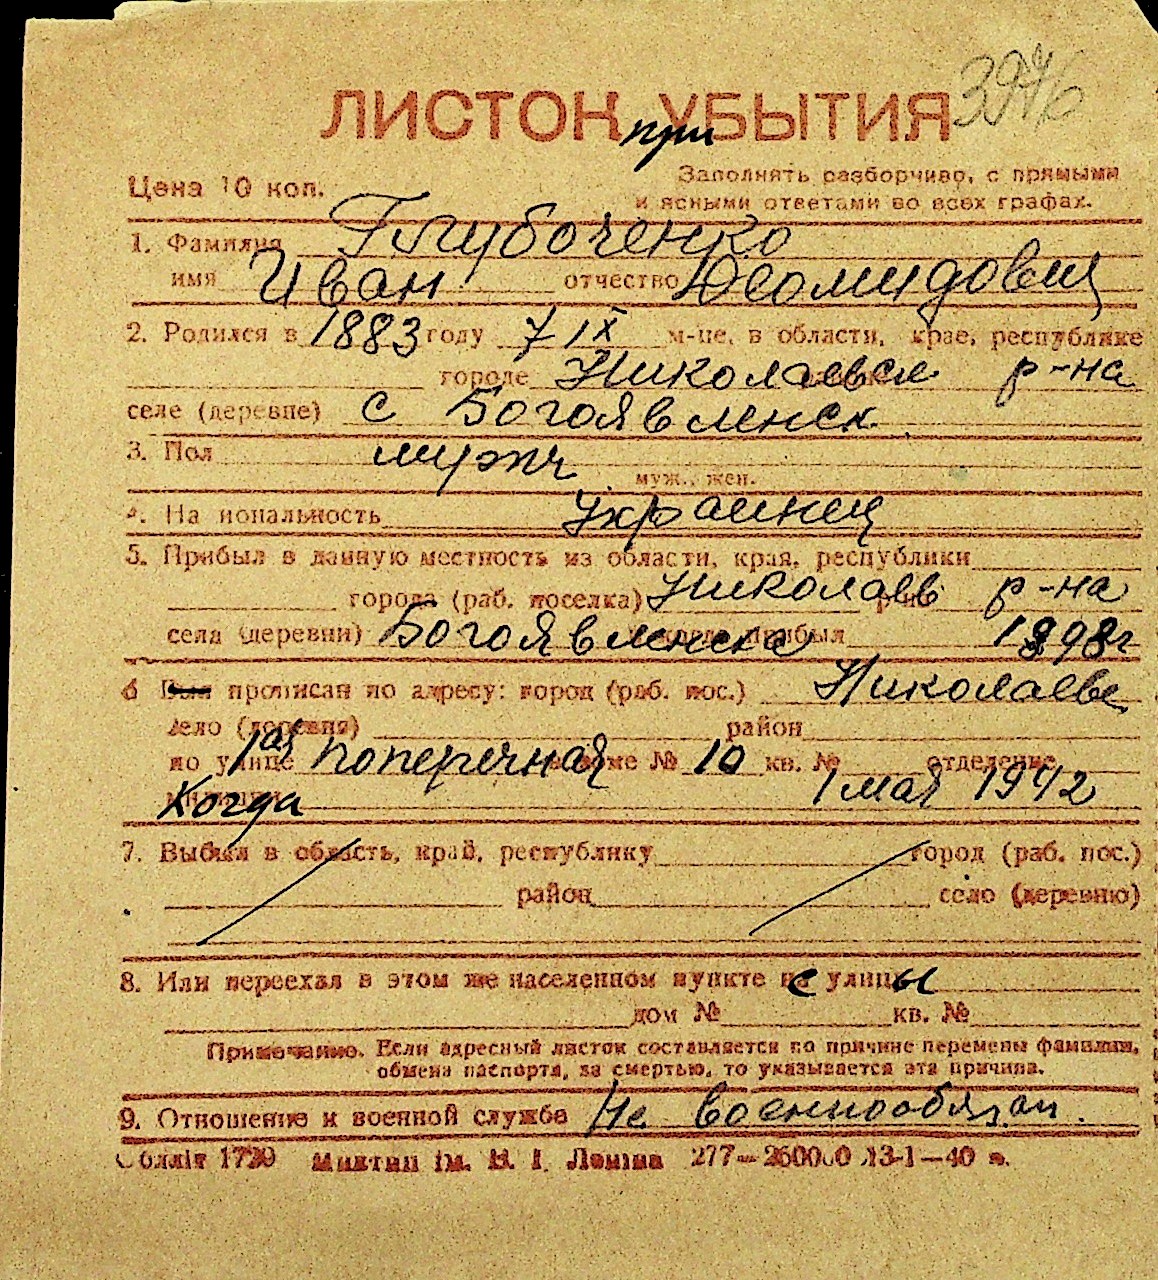 3976
ЛИСТОК при УБЫТИЯ
Цена 10 коп.
Заполнять разборчиво, с прямыми
и ясными ответами во всех графах.
1. Фамилия Глубоченко
имя Иван отчество Деомидович
2. Родился в 1883 году 7 IX м-це, в области, крае, республике
городе Николаевск р-на
селе (деревне) с Богоявленск
3. Пол мужч
муж., жен.
4. Национальность Украинец
5. Прибыл в данную местность из области, края, республики
города (раб. поселка) Николаев р-на
села (деревни) Богоявленска прибыл 1898 г
6 прописан по адресу: город (раб. пос.) Николаеве
село (деревня) район
по улице 1ая поперечная доме № 10 кв. № отделение
милиции Когда 1 мая 1942
7. Выбыл в область, край, республику город (раб. пос.)
район село (деревню)
8. Или переехал в этом же населенном пункте с улицы
дом № кв. №
Примечание. Если адресный листок составляется по причине перемены фамилии,
обмена паспорта, за смертью, то указывается эта причина.
9. Отношение к военной службе Не военнообязан.
Обллiт 1729 ім. В. І. Леніна 277—260000 13-1—40 р.